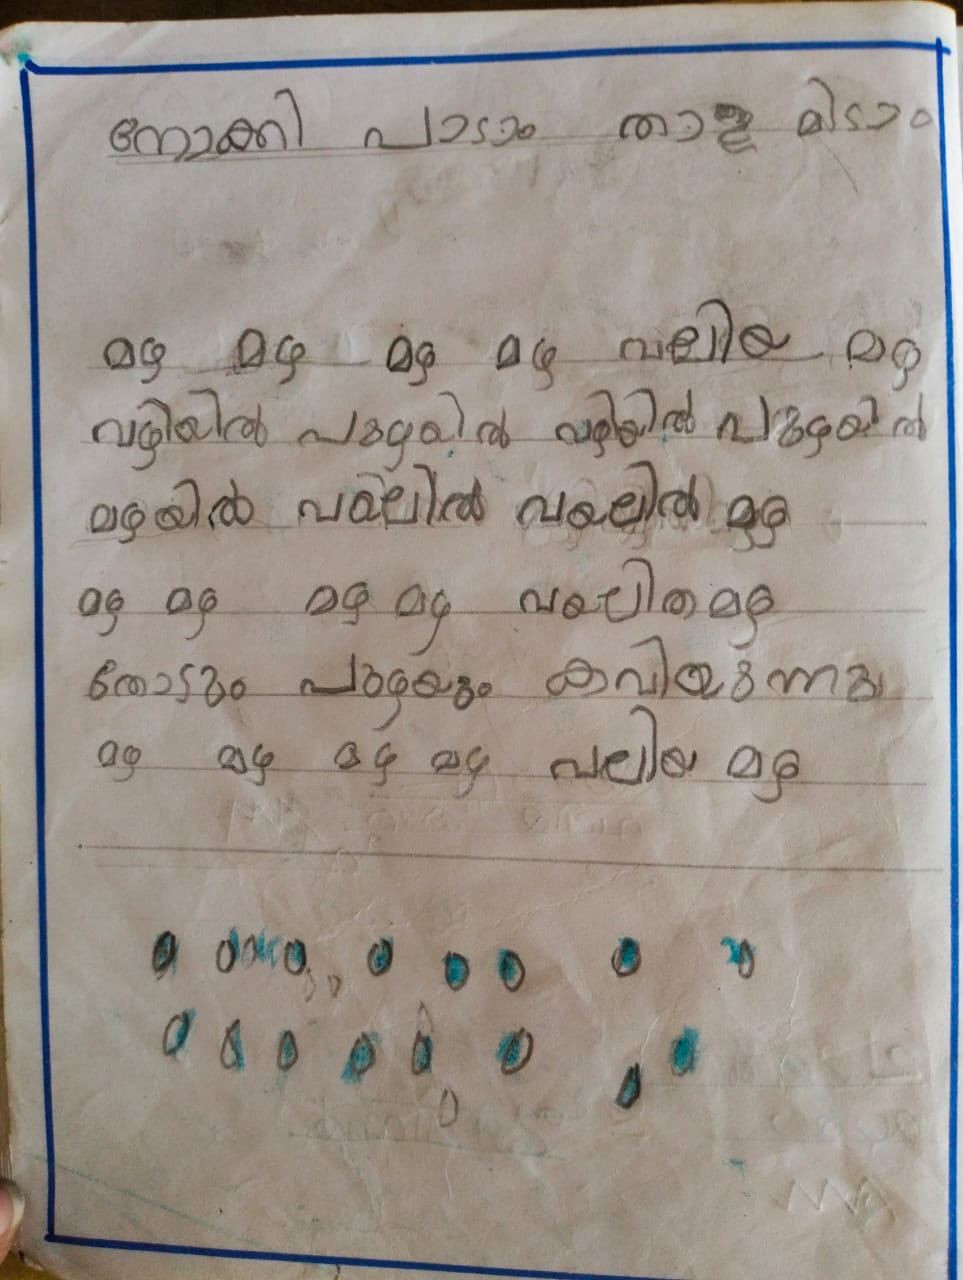 നോക്കി പാടാം താള മിടാം
മഴ മഴ മഴ മഴ വലിയ മഴ
വഴിയിൽ പുഴയിൽ വഴിയിൽ പുഴയിൽ
മഴയിൽ പയലിൽ വയലിൽ മഴ
മഴ മഴ മഴ മഴ വയലിത മഴ
തോടും പുഴയും കവിയുന്നു
മഴ മഴ മഴ മഴ പലിയ മഴ